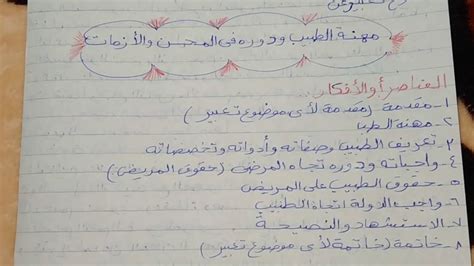 مهنة الطبيب ودوره فى المحن والأزمات
العناصر أو الأفكار..
١- مقدمة (مقدمة لأى موضوع تعبير)
٢- مهنة الطب
٣- تعريف الطبيب وصفاته وأدواته وتخصصاته
٤- واجباته ودوره تجاه المرضى (حقوق المريض)
٥- حقوق الطبيب على المريض
٦- واجب الدولة اتجاه الطبيب
٧- الاستشهاد والنصيحة
٨- خاتمة (خاتمة لأى موضوع تعبير)